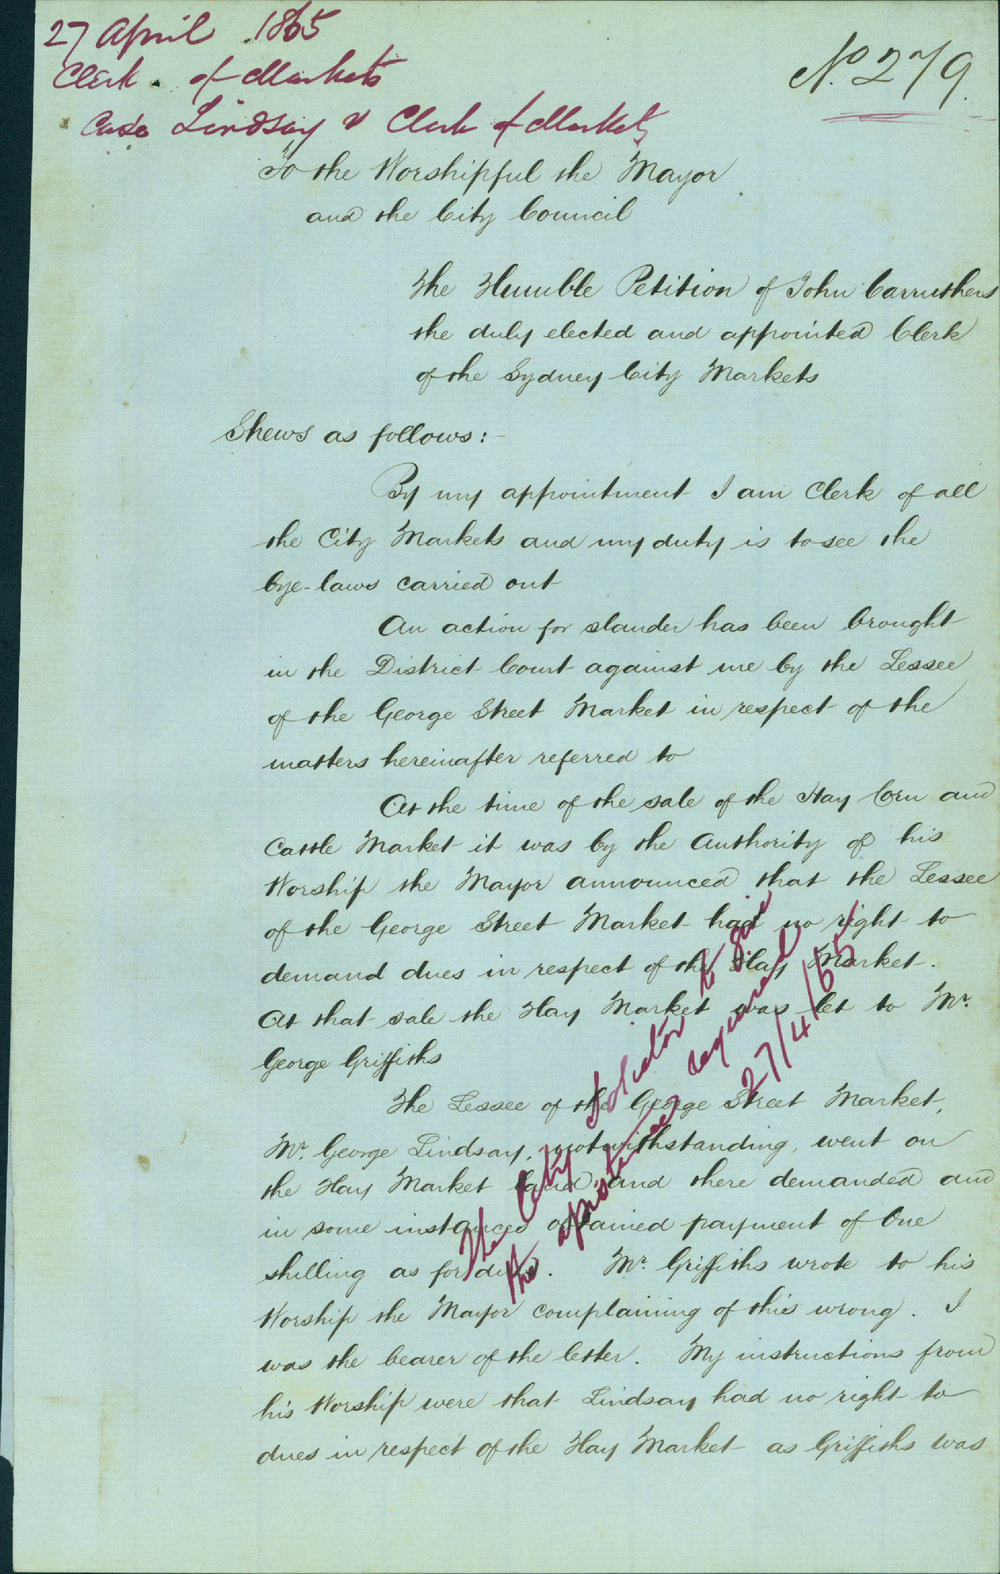 27 April 1865
Clerk of Markets
Case Lindsay v Clerk of Markets
No 279.
To the Worshipful the Mayor
and the City Council
The Humble Petition of John Carruthers
the duly elected and appointed Clerk
of the Sydney City Markets
Shews as follows:-
By my appointment I am Clerk of all
the City Markets and my duty is to see the
bye-laws carried out
An action for slander has been brought
in the District Court against me by the Lessee
of the George Street Market in respect of the
matters hereinafter referred to
At the time of the sale of the Hay Corn and
Cattle Market it was by the Authority of his
Worship the Mayor announced that the Lessee
of the George Street Market had no right to
demand dues in respect of the Hay Market.
At that sale the Hay Market was let to Mr.
George Griffiths
The Lessee of the George Street Market,
Mr. George Lindsay, notwithstanding, went on
the Hay Market land and there demanded and
in some instances obtained payment of One
shilling as for dues. Mr. Griffiths wrote to his
Worship the Mayor complaining of this wrong. I
was the bearer of the letter. My instructions from
his Worship were that Lindsay had no right to
dues in respect of the Hay Market as Griffiths was
The City Solicitor to give
the assistance required
27/4/65